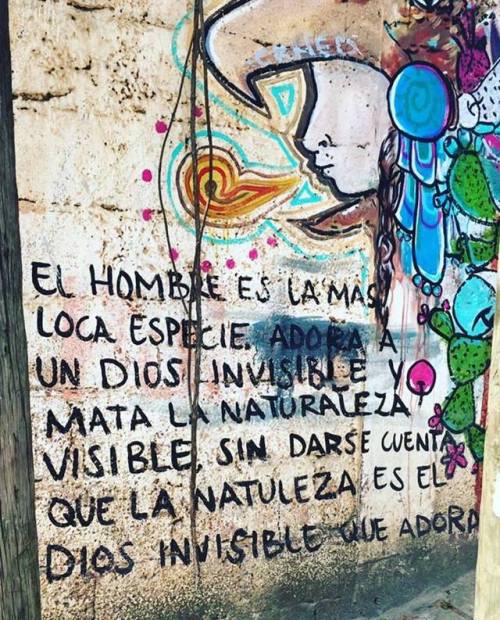 EL HOMBRE ES LA MAS
LOCA ESPECIE. ADORA A
UN DIOS INVISIBLE Y
MATA LA NATURALEZA
VISIBLE, SIN DARSE CUENTA
QUE LA NATULEZA ES EL
DIOS INVISIBLE QUE ADORA